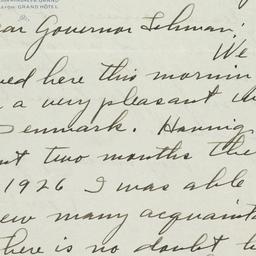 GRAND HOTEL
ear Governor Lehman:
We
ved here this mornin
a a very pleasant
Denmark. Having
nt two months the
1926 I was able
ew many acquaint
here is no doubt